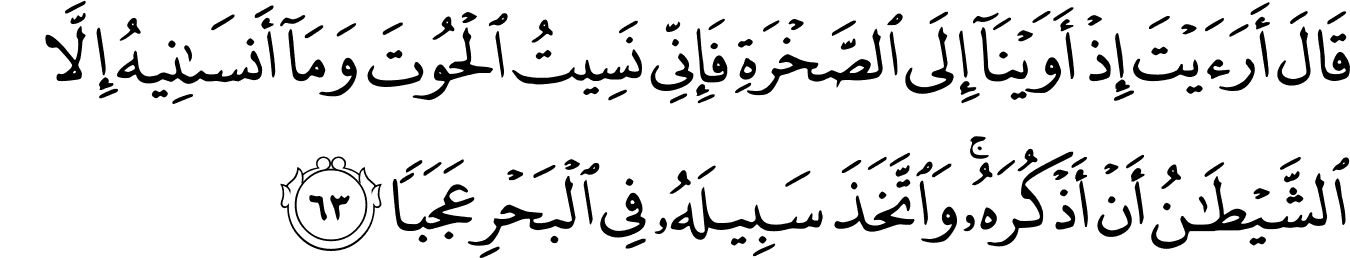 قَالَ أَرَءَيْتَ إِذْ أَوَيْنَآ إِلَى ٱلصَّخْرَةِ فَإِنِّى نَسِيتُ ٱلْحُوتَ وَمَآ أَنسَىٰنِيهُ إِلَّا
ٱلشَّيْطَـٰنُ أَنْ أَذْكُرَهُۥ ۚ وَٱتَّخَذَ سَبِيلَهُۥ فِى ٱلْبَحْرِ عَجَبًا ٦٣